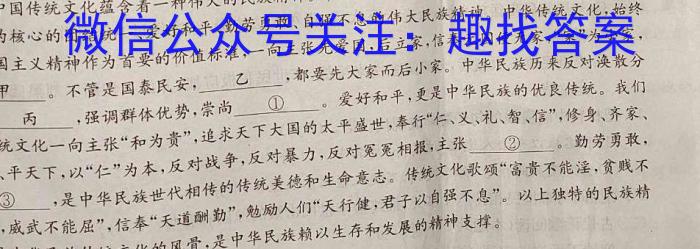 中国传统文化蕴含着一种伟大的民族精神
爱好和平、勤劳勇敢、自强不息的伟大民族精神。中华传统文化,始终
微信公众号关注:趣找答案
国主义精神作为首要的价值标准,一向主张先爱国,后立家,信奉
甲。不管是国泰民安,乙,都要先大家而后小家。中华民族历来反对涣散分
丙,强调群体优势,崇尚①。爱好和平,更是中华民族的优良传统。我们
统文化一向主张“和为贵”,追求天下大国的太平盛世,奉行“仁、义、礼、智、信”,修身、齐家、
平天下,以“仁”为本,反对战争,反对暴力,反对冤冤相报,主张②。勤劳勇敢,
③,是中华民族世代相传的传统美德和生命意志。传统文化歌颂“富贵不能淫,贫贱不
,威武不能屈”,信奉“天道酬勤”,勉励人们“天行健,君子以自强不息”。以上独特的民族精
的风骨,是中华民族赖以生存和发展的精神支撑。